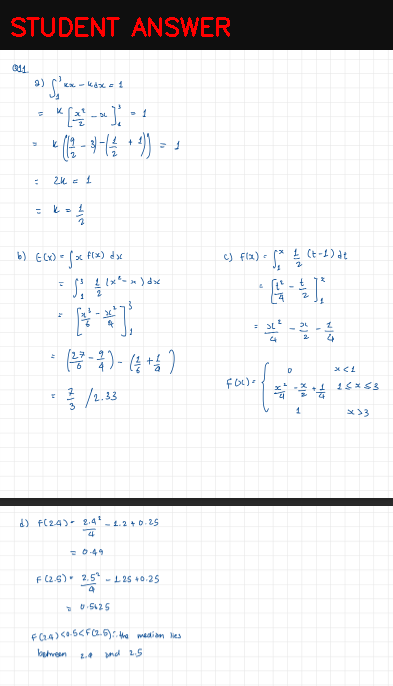 STUDENT ANSWER
Q11
a) ∫₁³ kx - k dx = 1
= k [x²/2 - x]₁³ = 1
= k((9/2 - 3) - (1/2 + 1)) = 1
= 2k = 1
= k = 1/2
b) E(x) = ∫x f(x) dx
= ∫₁³ 1/2 (x² - x) dx
= [x³/6 - x²/4]₁³
= (27/6 - 9/4) - (1/6 + 1/4)
= 7/3 / 2.33
c) F(x) = ∫₁ˣ 1/2 (t - 1) dt
= [t²/4 - t/2]₁ˣ
= x²/4 - x/2 - 1/4
F(x) = { 0 x < 1
x²/4 - x/2 + 1/4 1 ≤ x ≤ 3
1 x > 3
d) F(2.4) = 2.4²/4 - 1.2 + 0.25
= 0.49
F(2.5) = 2.5²/4 - 1.25 + 0.25
= 0.5625
F(2.4) < 0.5 < F(2.5) ∴ the median lies
between 2.4 and 2.5